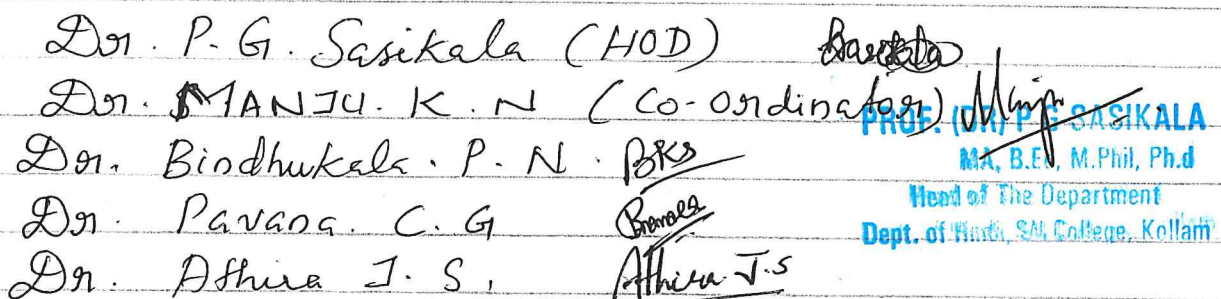 Dr. P. G. Sasikala (HOD) Sasikala
Dr. MANJU. K. N (Co-ordinator) Manju
Dr. Bindhukala. P. N. BKS
Dr. Pavana. C. G
Dr. Athira J. S. Athira J.S
PROF. (DR) P G SASIKALA
MA, B.Ed, M.Phil, Ph.d
Head of The Department
Dept. of Hindi, SN College, Kollam